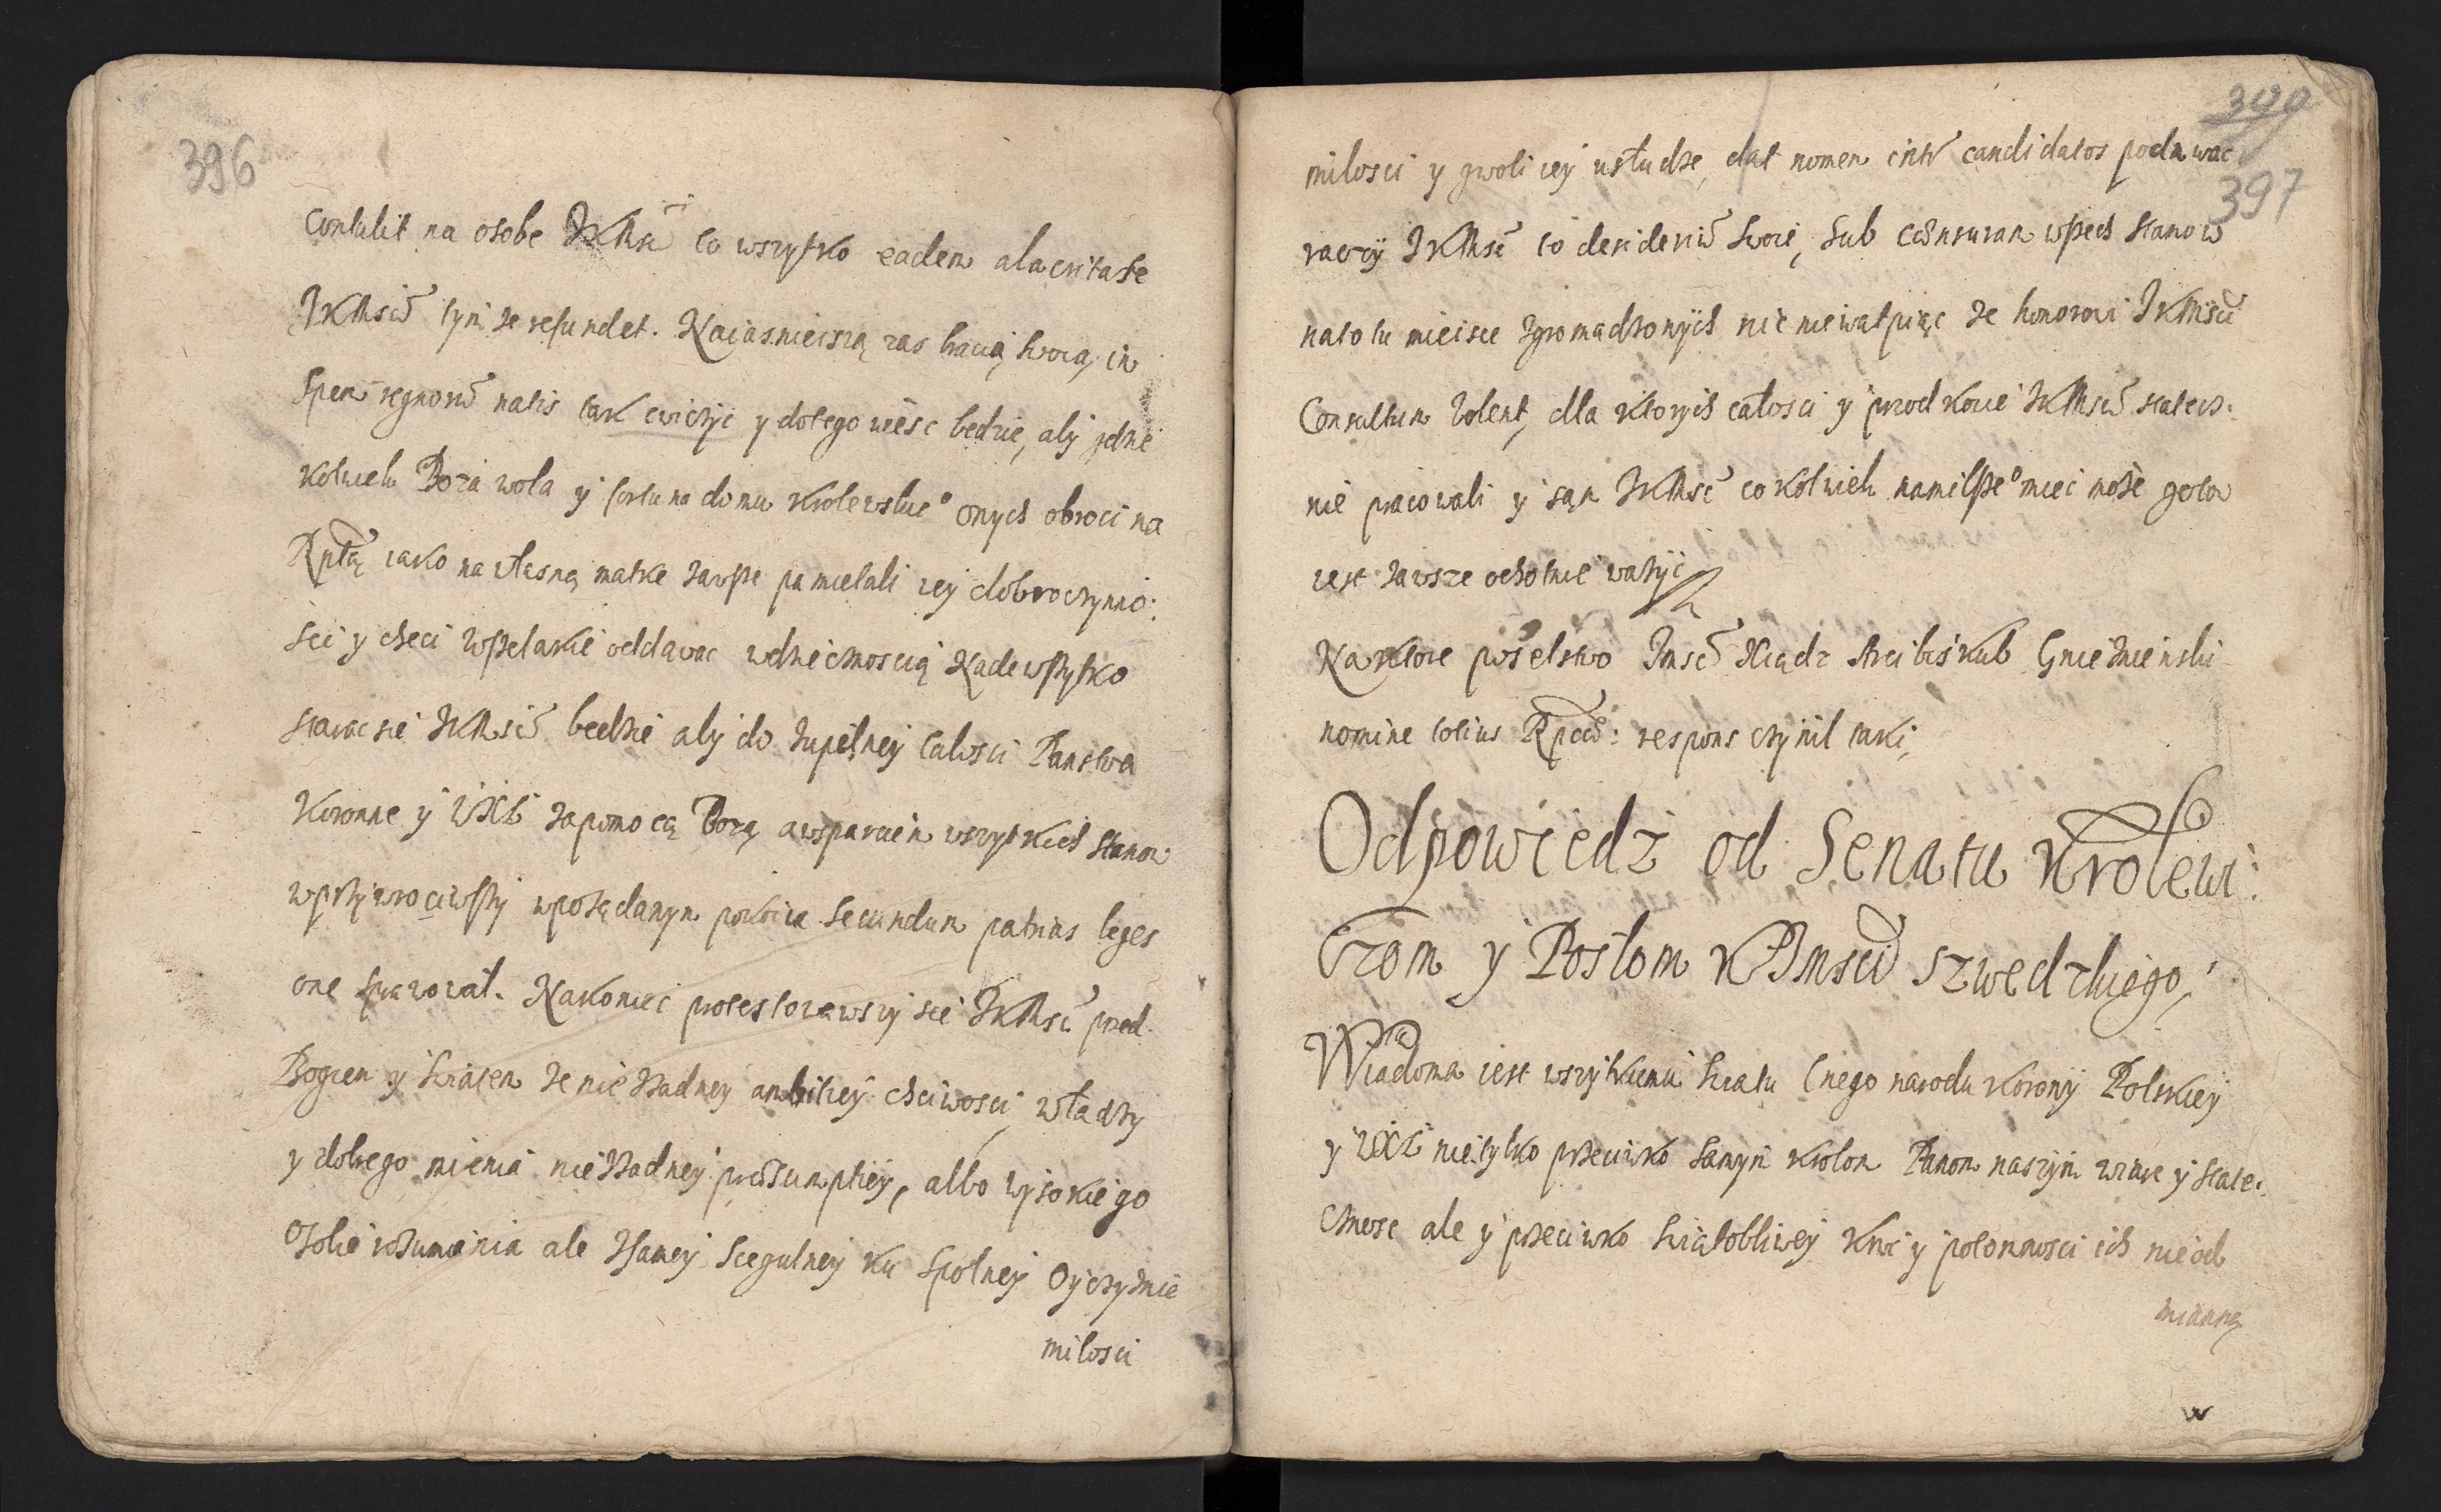 396
contulit na osobe JKMsci to wszytko eadem alacritate
JKMsci tym ze refundet. Naiasnieiszą zas bracią swoią, in
spem regnorũ natis tak cwiczyc y do tego wiesc bedzie, aby gdzie
kolwiek Boża wola y fortuna domu krolewskie° onych obroci na
Rptą iako na własną matke zawsze pamietali iey dobroczynno:
sci y checi wszelakie oddawac wdziecznoscią Nadewszytko
starac sie JKMsc bedzie aby do zupełney całosci Panstwa
Koronne y WXL za pomocą Bożą a wsparciem wszytkich stanow
w przywrociwszy w pożądanym pokoiu secundum patrias leges
one sprawował. Nakoniec protestowawszy sie JKMsc pred
Bogiem y swiatem że nie z żadney ambitiey chciwosci, władzy
y dobrego mienia nie z żadney præsumptiey, albo wysokiego
o sobie rozumienia ale z samey scegulney ku spolney oyczyznie
milosci
399
397
milosci y gwoli iey usłudze, dał nomen inter candidatos podawac
raczy JKMsc to desideriũ swoie, sub censuram wszech stanow
na to tu mieisce zgromadzonych nic niewątpiąc że honorowi JKMsci
Consultum volent, dla ktorych całosci y przodkowie JKMsci statecz:
nie pracowali y sam JKMsc cokolwiek namilsze° miec może gotow
iest zawsze ochotnie ważyc
Na ktore poselstwo Jmsc Xiądz Arcibiskub Gnieznienski
nomine totius Rpcæ: respons czynil taki,
Odpowiedz od Senatu Krolewi:
czom y Posłom K Jmsci szwedzkiego,
Wiadoma iest wszytkiemu swiatu cnego narodu Korony Polskiey
y WXL nie tylko przeciwko samym krolom Panom naszym wiara y state:
cznosc ale y przeciwko swiątobliwey krwi y potomnosci ich nieod
mianną